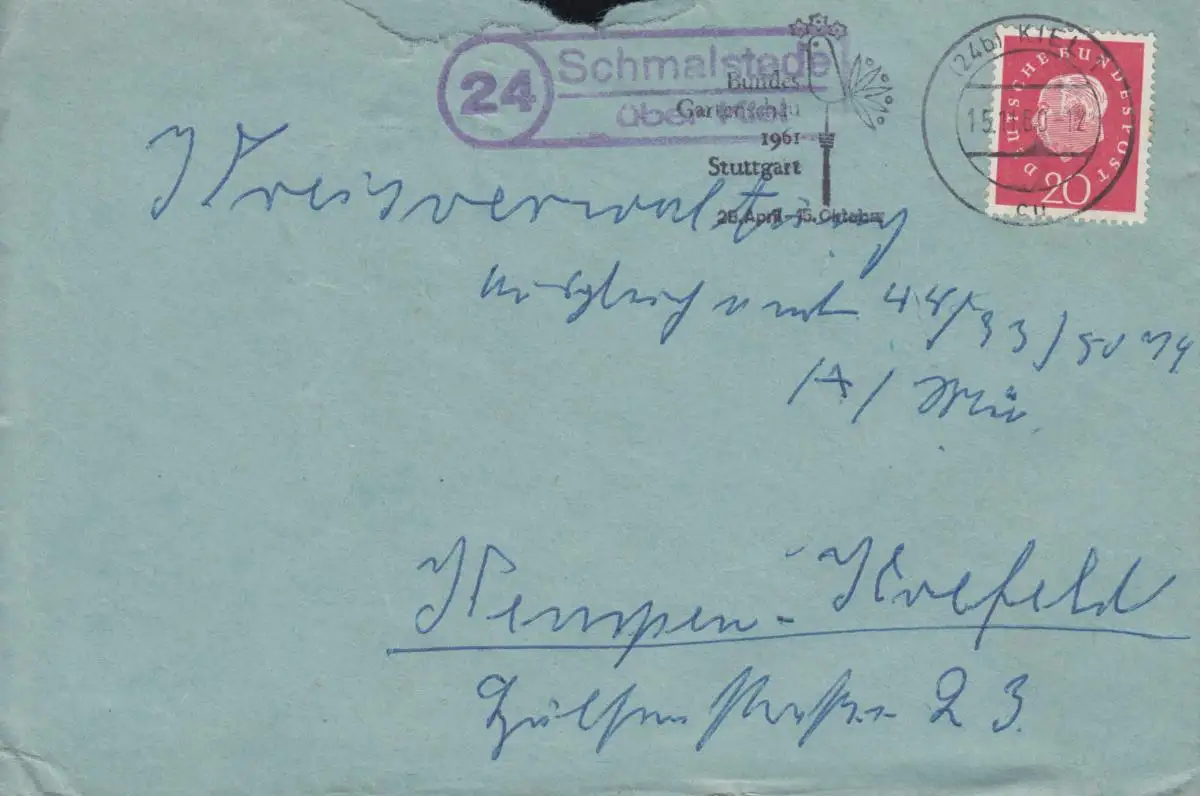 24 Schmalstede
über Kiel
Bundes
Gartenschau
1961
Stuttgart
28. April - 15. Oktober
(24b) KIEL 1
15.10.60-12
cu
DEUTSCHE BUNDESPOST
20
Kreisverwaltung
Ausgleichsamt 445
33/50 74
/A/ Mü.
Kempen-Krefeld
Hülserstraße 23.